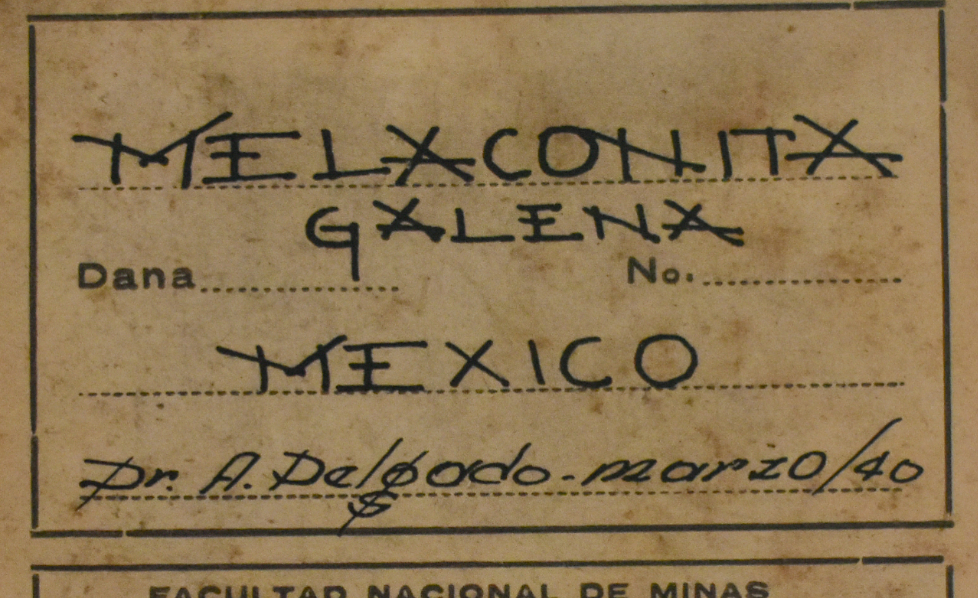 MELACONITA
GALENA
Dana No.
MEXICO
Dr. A. Delgado - marzo/40
FACULTAD NACIONAL DE MINAS